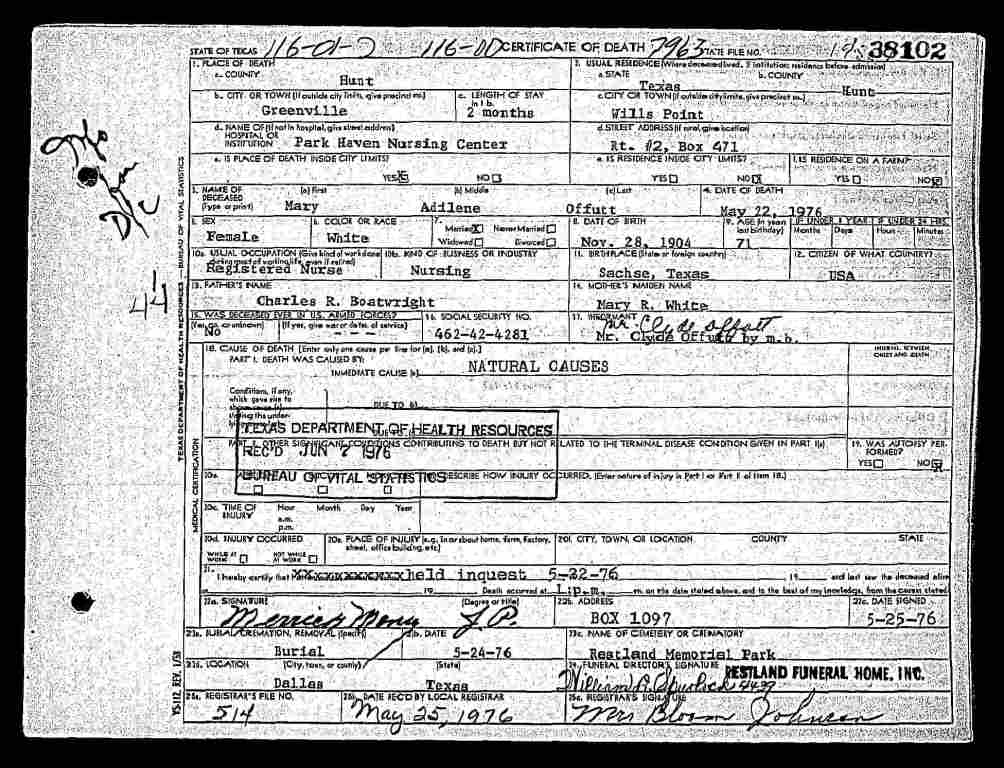 STATE OF TEXAS 116-01-2 116-00 CERTIFICATE OF DEATH 7963 STATE FILE NO. 38102
1. PLACE OF DEATH 2. USUAL RESIDENCE (Where deceased lived. If institution: residence before admission)
a. COUNTY Hunt a. STATE Texas b. COUNTY Hunt
b. CITY OR TOWN (If outside city limits, give precinct no.) c. LENGTH OF STAY in 1 b. c. CITY OR TOWN (If outside city limits, give precinct no.)
Greenville 2 months Wills Point
d. NAME OF (If not in hospital, give street address) d. STREET ADDRESS (If rural, give location)
HOSPITAL OR INSTITUTION Park Haven Nursing Center Rt. #2, Box 471
e. IS PLACE OF DEATH INSIDE CITY LIMITS? e. IS RESIDENCE INSIDE CITY LIMITS? f. IS RESIDENCE ON A FARM?
YES NO YES NO YES NO
3. NAME OF DECEASED (Type or print) (a) First (b) Middle (c) Last 4. DATE OF DEATH
Mary Adilene Offutt May 22, 1976
5. SEX 6. COLOR OR RACE 7. Married Never Married 8. DATE OF BIRTH 9. AGE (In years last birthday) IF UNDER 1 YEAR IF UNDER 24 HRS.
Months Days Hours Minutes
Female White Widowed Divorced Nov. 28, 1904 71
10a. USUAL OCCUPATION (Give kind of work done during most of working life, even if retired) 10b. KIND OF BUSINESS OR INDUSTRY 11. BIRTHPLACE (State or foreign country) 12. CITIZEN OF WHAT COUNTRY?
Registered Nurse Nursing Sachse, Texas USA
13. FATHER'S NAME 14. MOTHER'S MAIDEN NAME
Charles R. Boatwright Mary R. White
15. WAS DECEASED EVER IN U.S. ARMED FORCES? 16. SOCIAL SECURITY NO. 17. INFORMANT
(Yes, no, or unknown) (If yes, give war or dates of service) Mr. Clyde Offutt
No - - - 462-42-4281 Mr. Clyde Offutt by m.b.
18. CAUSE OF DEATH [Enter only one cause per line for (a), (b), and (c).] INTERVAL BETWEEN ONSET AND DEATH
PART I. DEATH WAS CAUSED BY:
IMMEDIATE CAUSE (a) NATURAL CAUSES
Conditions, if any, which gave rise to
DUE TO (b)
TEXAS DEPARTMENT OF HEALTH RESOURCES
PART II. OTHER SIGNIFICANT CONDITIONS CONTRIBUTING TO DEATH BUT NOT RELATED TO THE TERMINAL DISEASE CONDITION GIVEN IN PART I(a) 19. WAS AUTOPSY PERFORMED?
REC'D JUN 7 1976 YES NO
BUREAU OF VITAL STATISTICS DESCRIBE HOW INJURY OCCURRED. (Enter nature of injury in Part I or Part II of Item 18.)
20c. TIME OF INJURY Hour Month Day Year
a.m.
p.m.
20d. INJURY OCCURRED 20e. PLACE OF INJURY (e.g., in or about home, farm, factory, street, office building, etc.) 20f. CITY, TOWN, OR LOCATION COUNTY STATE
WHILE AT WORK NOT WHILE AT WORK
21. I hereby certify that held inquest 5-22-76 19 and last saw the deceased alive
19 Death occurred at 1:p.m. m. on the date stated above, and to the best of my knowledge, from the causes stated
22a. SIGNATURE (Degree or title) 22b. ADDRESS 22c. DATE SIGNED
J.P. BOX 1097 5-25-76
23a. BURIAL, CREMATION, REMOVAL (Specify) 23b. DATE 23c. NAME OF CEMETERY OR CREMATORY
Burial 5-24-76 Restland Memorial Park
23d. LOCATION (City, town, or county) (State) 24. FUNERAL DIRECTOR'S SIGNATURE
Dallas Texas RESTLAND FUNERAL HOME, INC.
25a. REGISTRAR'S FILE NO. 25b. DATE REC'D BY LOCAL REGISTRAR 25c. REGISTRAR'S SIGNATURE
514 May 25, 1976 Mrs Bloom Johnson
TEXAS DEPARTMENT OF HEALTH RESOURCES BUREAU OF VITAL STATISTICS
MEDICAL CERTIFICATION
VS-112 REV. 1/58